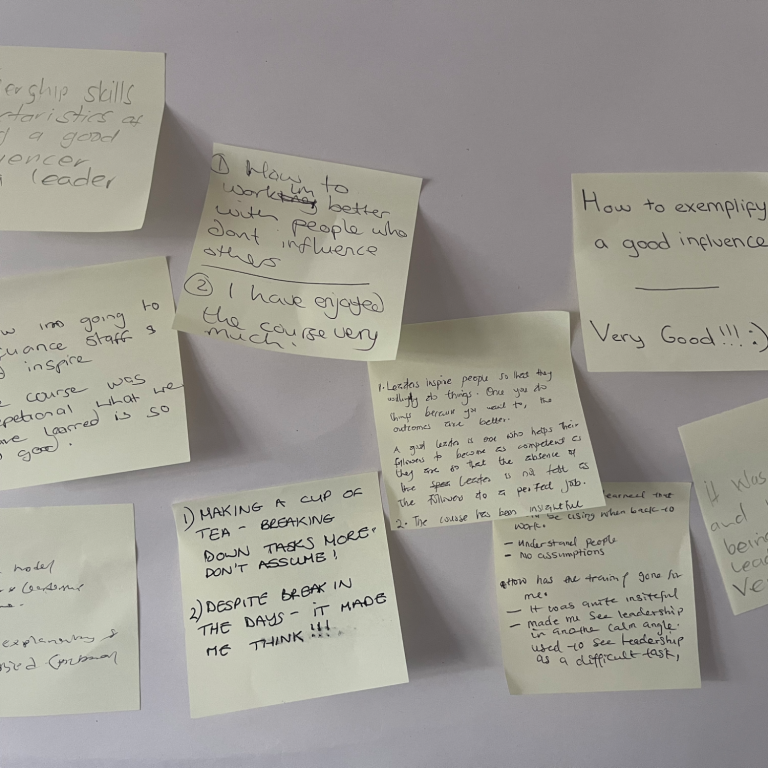 skills
a good
leader
① How to
work better
with people who
dont influence
others
② I have enjoyed
the course very
much.
How to exemplify
a good influence
Very Good!!! :)
going to
staff &
inspire
course was
what we
learned is so
good.
1. Leaders inspire people so that they
willingly do things. Once you do
things because you want to, the
outcomes are better.
A good leader is one who helps their
followers to become as competent as
they are so that the absence of
the Leader is not felt as
the followers do a perfect job.
2. The course has been insightful
1) MAKING A CUP OF
TEA - BREAKING
DOWN TASKS MORE.
DON'T ASSUME!
2) DESPITE BREAK IN
THE DAYS - IT MADE
ME THINK!!!
be using when back to
work.
- Understand people
- No assumptions
How has the training gone for
me.
- It was quite insiteful
- made me see leadership
in another calm angle.
used to see leadership
as a difficult task,
it was
and
being
model